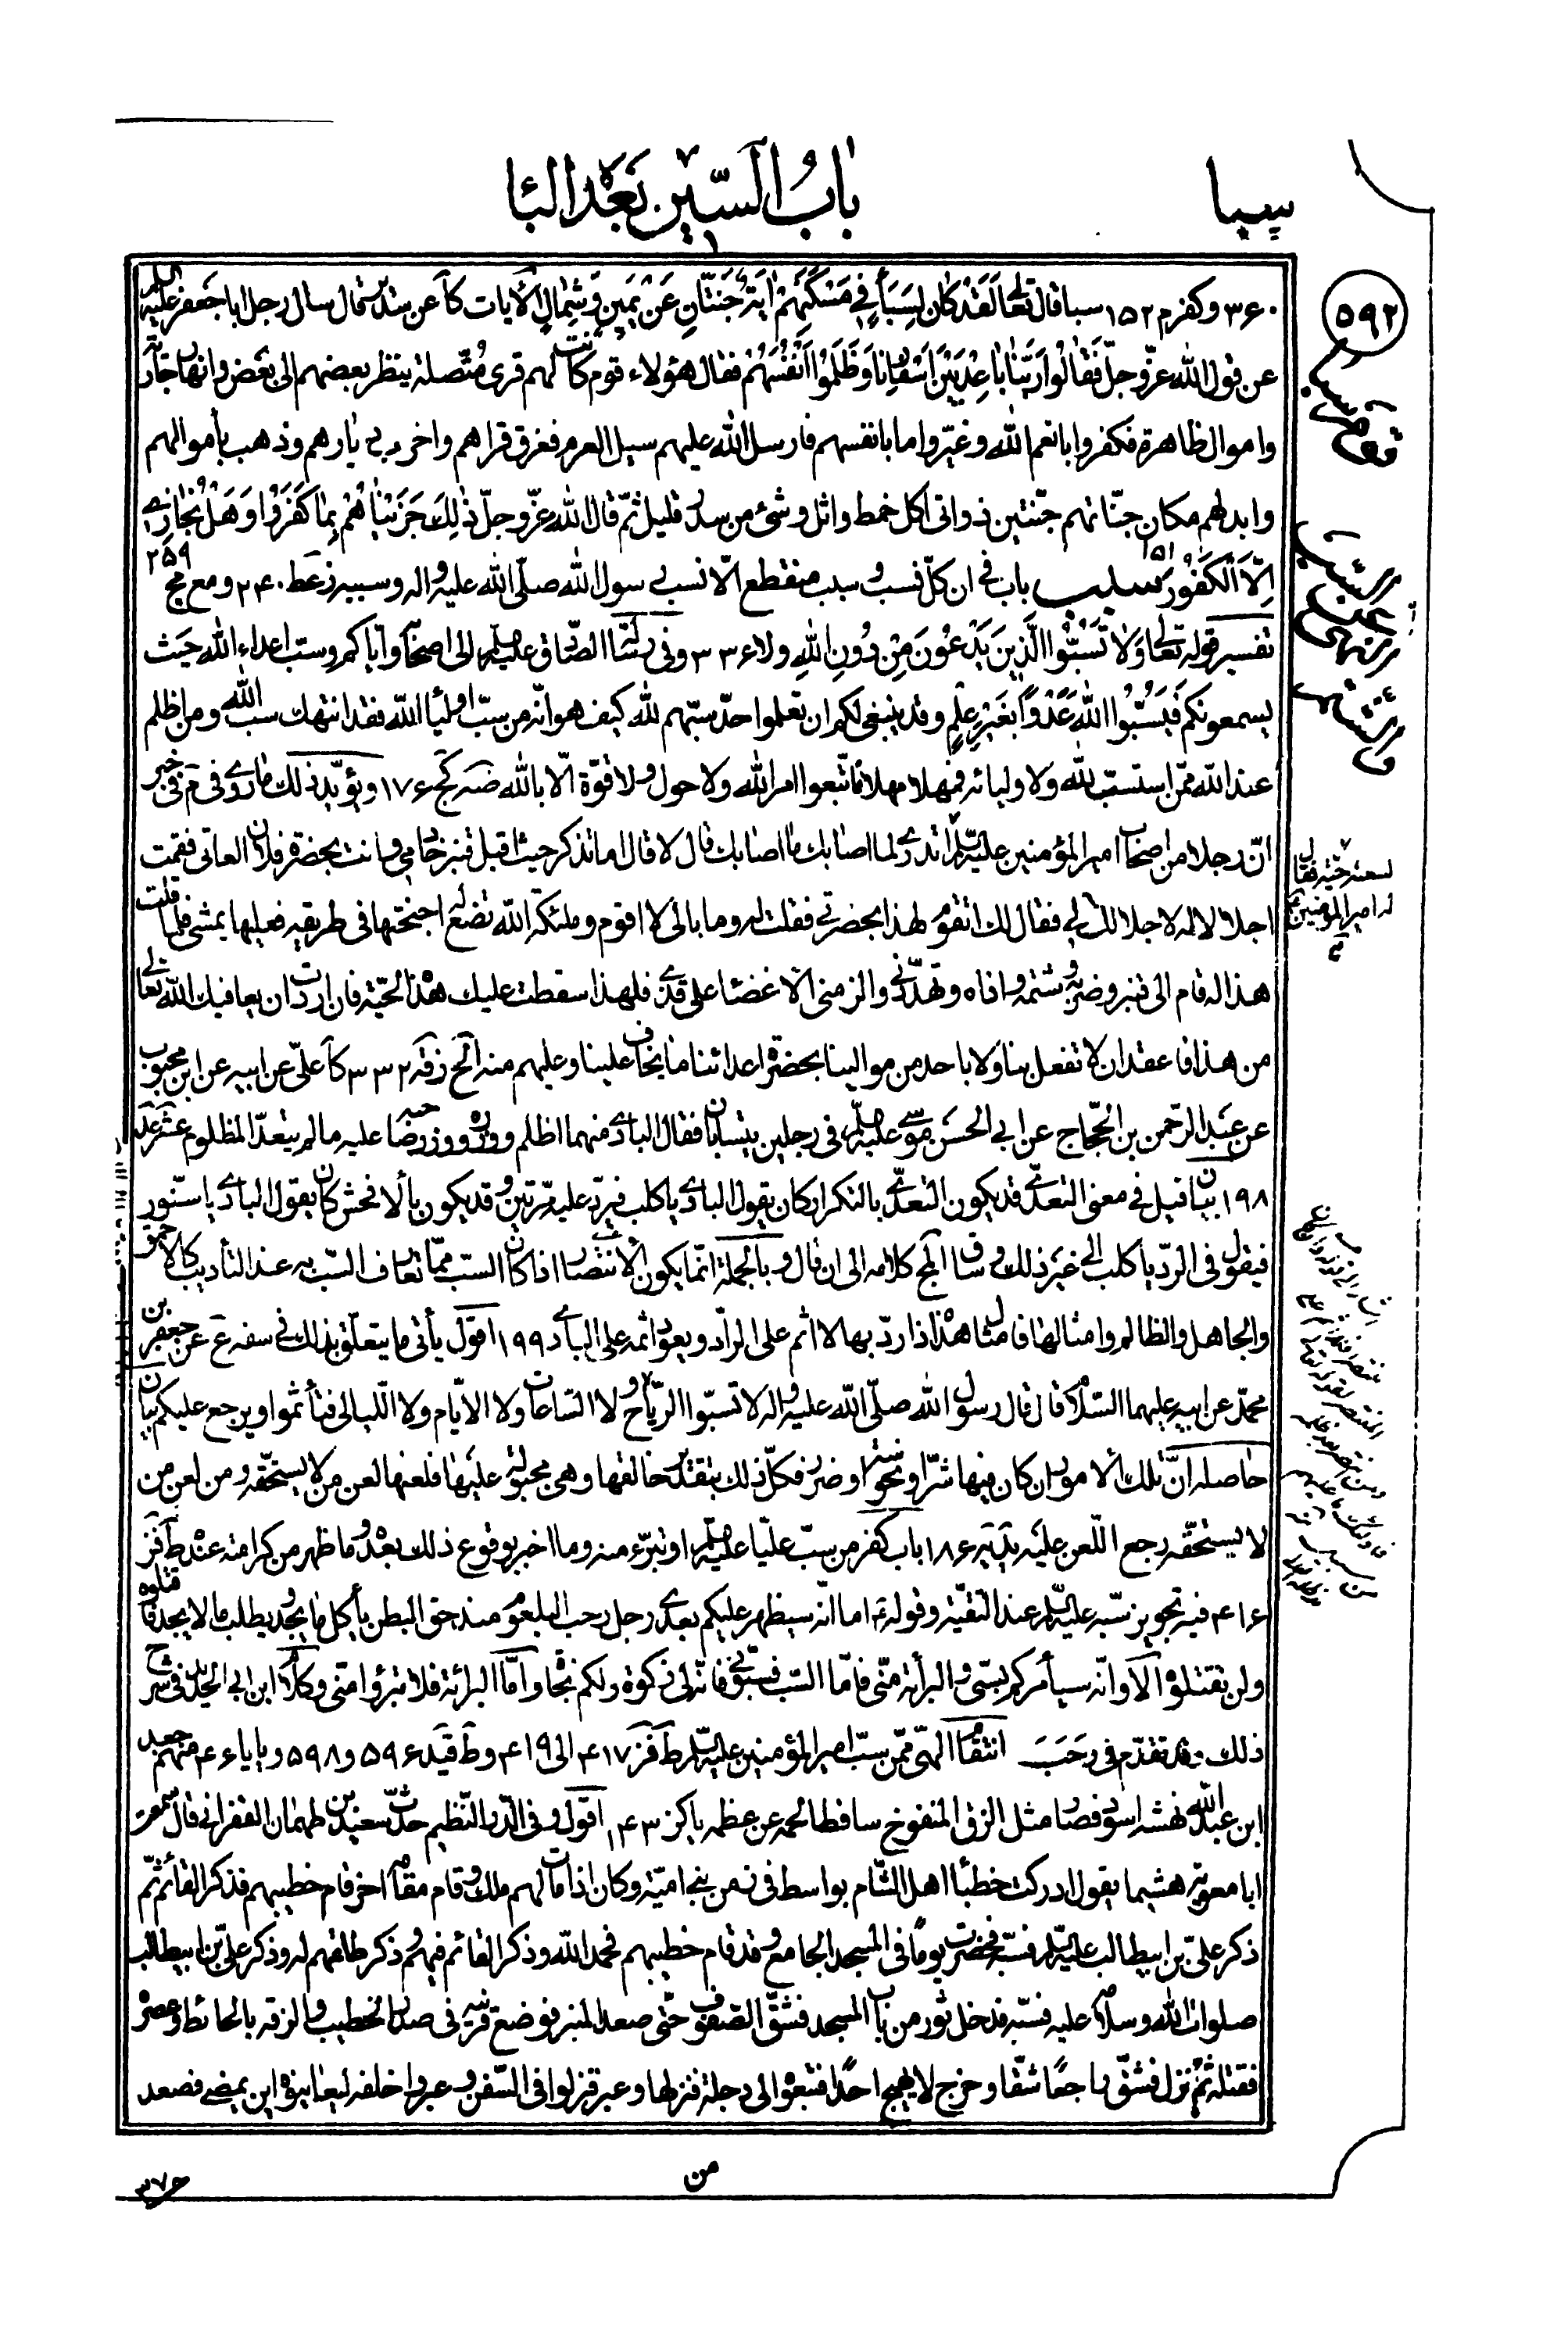 سبا
باب السّين بعد البا
۵۹۲
۳۶۰ وكفر م ۱۵۲ سبا قال تعالى لَقَدْ كانَ لِسَبَأٍ في مَسْكَنِهِمْ ايَةٌ جَنَّتانِ عَنْ يَمينٍ وَ شِمالٍ الآيات كا عن سدير قال سال رجل ابا جعفر عليه السلم
عن قول الله عزّ وجلّ فَقالُوا رَبَّنا باعِدْ بَيْنَ اَسْفارِنا وَ ظَلَمُوا اَنْفُسَهُمْ فقال هؤلاء قوم كانت لهم قرى مُتّصلة ينظر بعضهم الى بعض وانهار جارية
واموال ظاهرة فكفروا بانعم الله وغيّروا ما بانفسهم فارسل الله عليهم سيل العرم فغرق قراهم واخرب ديارهم وذهب بأموالهم
وابدلهم مكان جنّاتهم جنّتين ذواتى اكل خمط واثل وشئ من سدر قليل ثمّ قال الله عزّ وجلّ ذلِكَ جَزَيْناهُمْ بِما كَفَرُوا وَ هَلْ نُجازي
اِلَّا الْكَفُورَ ۱۵۱ سبب باب فى ان كلّ نسب وسبب منقطع الّا نسب رسول الله صلّى الله عليه واله وسببه ز عط ۲۴۰ ومع مج ۲۵۹
تفسير قوله تعالى وَلا تَسُبُّوا الَّذينَ يَدْعُونَ مِنْ دُونِ اللهِ ولا ۳۳۶ وفى رسالة الصّادق عليه السلم الى اصحابه واياكم وسبّ اعداء الله حيث
يسمعونكم فَيَسُبُّوا اللهَ عَدْوًا بِغَيْرِ عِلْمٍ وقد ينبغى لكم ان تعلموا حدّ سبّهم لله كيف هو انّه من سبّ اولياء الله فقد انتهك سب الله ومن اظلم
عند الله ممّن استسبّ لله ولاوليائه فمهلا مهلا فاتّبعوا امر الله ولا حول ولا قوّة الّا بالله ضه كج ۱۷۶ ويؤيّد ذلك ما روى فى م فى خبر
انّ رجلا من اصحاب امير المؤمنين عليه السلم اتدرى لما اصابك ما اصابك قال لا قال اما تذكر حيث اقبل قنبر خادمى وانت بحضرة فلان العاتى فقمت
اجلالا له لاجلالك لى فقال لك اتقوم لهذا بحضرتى فقلت له وما بالى لا اقوم وملئكة الله تضع له اجنحتها فى طريقه فعليها يمشى فلما قلت
هذا له قام الى قنبر وضربه وشتمه واذاه وتهدّدنى والزمنى الاغضاء على قذى فلهذا سقطت عليك هذه الحيّة فان اردت ان يعافيك الله تعالى
من هذا فاعتقد ان لا تفعل بنا ولا باحد من موالينا بحضرة اعدائنا ما يخاف علينا وعليهم منه الخ ز فه ۳۳۲ كا علىّ عن ابيه عن ابن محبوب
عن عبد الرّحمن بن الحجّاج عن ابى الحسن موسى عليه السلم فى رجلين يتسابّان فقال البادى منهما اظلم ووزره ووزر صاحبه عليه ما لم يتعدّ المظلوم عشر عد
۱۹۸ بيان قيل فى معنى التعدّى قد يكون التعدّى بالتكرار كان يقول البادى يا كلب فيردّ عليه مرّتين وقد يكون بالافحش كان يقول البادى يا سنّور
فيقول فى الردّ يا كلب الى غير ذلك وساق المج كلامه الى ان قال وبالجملة انّما يكون الانتصار اذا كان السب ممّا تعارف السّب به عند التأديب كالاحمق
والجاهل والظالم وامثالها فامثال هذا اذا ردّ بها لا اثم على الراد ويعود اثمه على البادى ۱۹۹ اقول يأتى ما يتعلّق بذلك فى سفه ع عن جعفر بن
محمّد عن ابيه عليهما السّلام قال قال رسول الله صلّى الله عليه واله لا تسبّوا الرّياح ولا الساعات ولا الايّام ولا اللّيالى فتأثموا ويرجع عليكم بيان
حاصله انّ تلك الامور ان كان فيها شرّ او نحوسة او ضرر فكلّ ذلك بتقدير خالقها وهى مجبولة عليها فلعنها لعن من لا يستحقّه ومن لعن من
لا يستحقّه رجع اللّعن عليه يد يه ۱۸۶ باب كفر من سبّ عليّا عليه السلم او تبرّء منه وما اخبر بوقوع ذلك بعد وما ظهر من كرامته عنده ط فز
۴۱۶ فيه تجويز سبّه عليه السلم عند التقيّة وقوله ع اما انّه سيظهر عليكم بعدى رجل رحب البلعوم مندحق البطن يأكل ما يجد ويطلب ما لا يجد فاقتلوه
ولن تقتلوه الا وانّه سيأمركم بسبّى والبرائة منّى فامّا السّب فسبّونى فانّه لى زكوة ولكم نجاة وامّا البرائة فلا تبرؤا منّى وكلام ابن ابى الحديد فى شرح
ذلك . قد تقدّم فى رَحَبَ انتقام الهىّ ممّن سبّ امير المؤمنين عليه السلم ط فز ۴۱۷ الى ۴۱۹ وط قيد ۵۹۶ و ۵۹۸ و يا يا ۴۶ منهم جعد
ابن عبد الله نهشه اسود فصار مثل الزق المنفوخ ساقطا لحمه عن عظمه يا كز ۱۴۳ اقول وفى الدّر النّظيم حدّث سعيد بن طهمان القفرانى قال سمعت
ابا معوية هشيما يقول ادركت خطباء اهل الشّام بواسط فى زمن بنى اميّة وكان اذا مات لهم ملك وقام مقامه اخر قام خطيبهم فذكر القائم ثمّ
ذكر علىّ بن ابيطالب عليه السلم فسبّه فحضرت يومًا فى المسجد الجامع وقد قام خطيبهم فحمد الله وذكر القائم فيهم وذكر طاعتهم له وذكر علىّ بن ابيطالب
صلوات الله وسلامه عليه فسبّه فدخل ثور من باب المسجد فشقّ الصّفوف حتّى صعد المنبر فوضع قرنيه فى صدر الخطيب والزقه بالحائط وعصره
فقتله ثمّ نزل فشقّ راجعًا شقّا وخرج لا يهيج احدًا فتبعوه الى دجلة فنزلها وعبر فنزلوا فى السّفن وعبروا خلفه ليعاينوه اين يمضى فصعد
من
قوم سبا
لسعته حيّة فقال
له امير المؤمنين ع